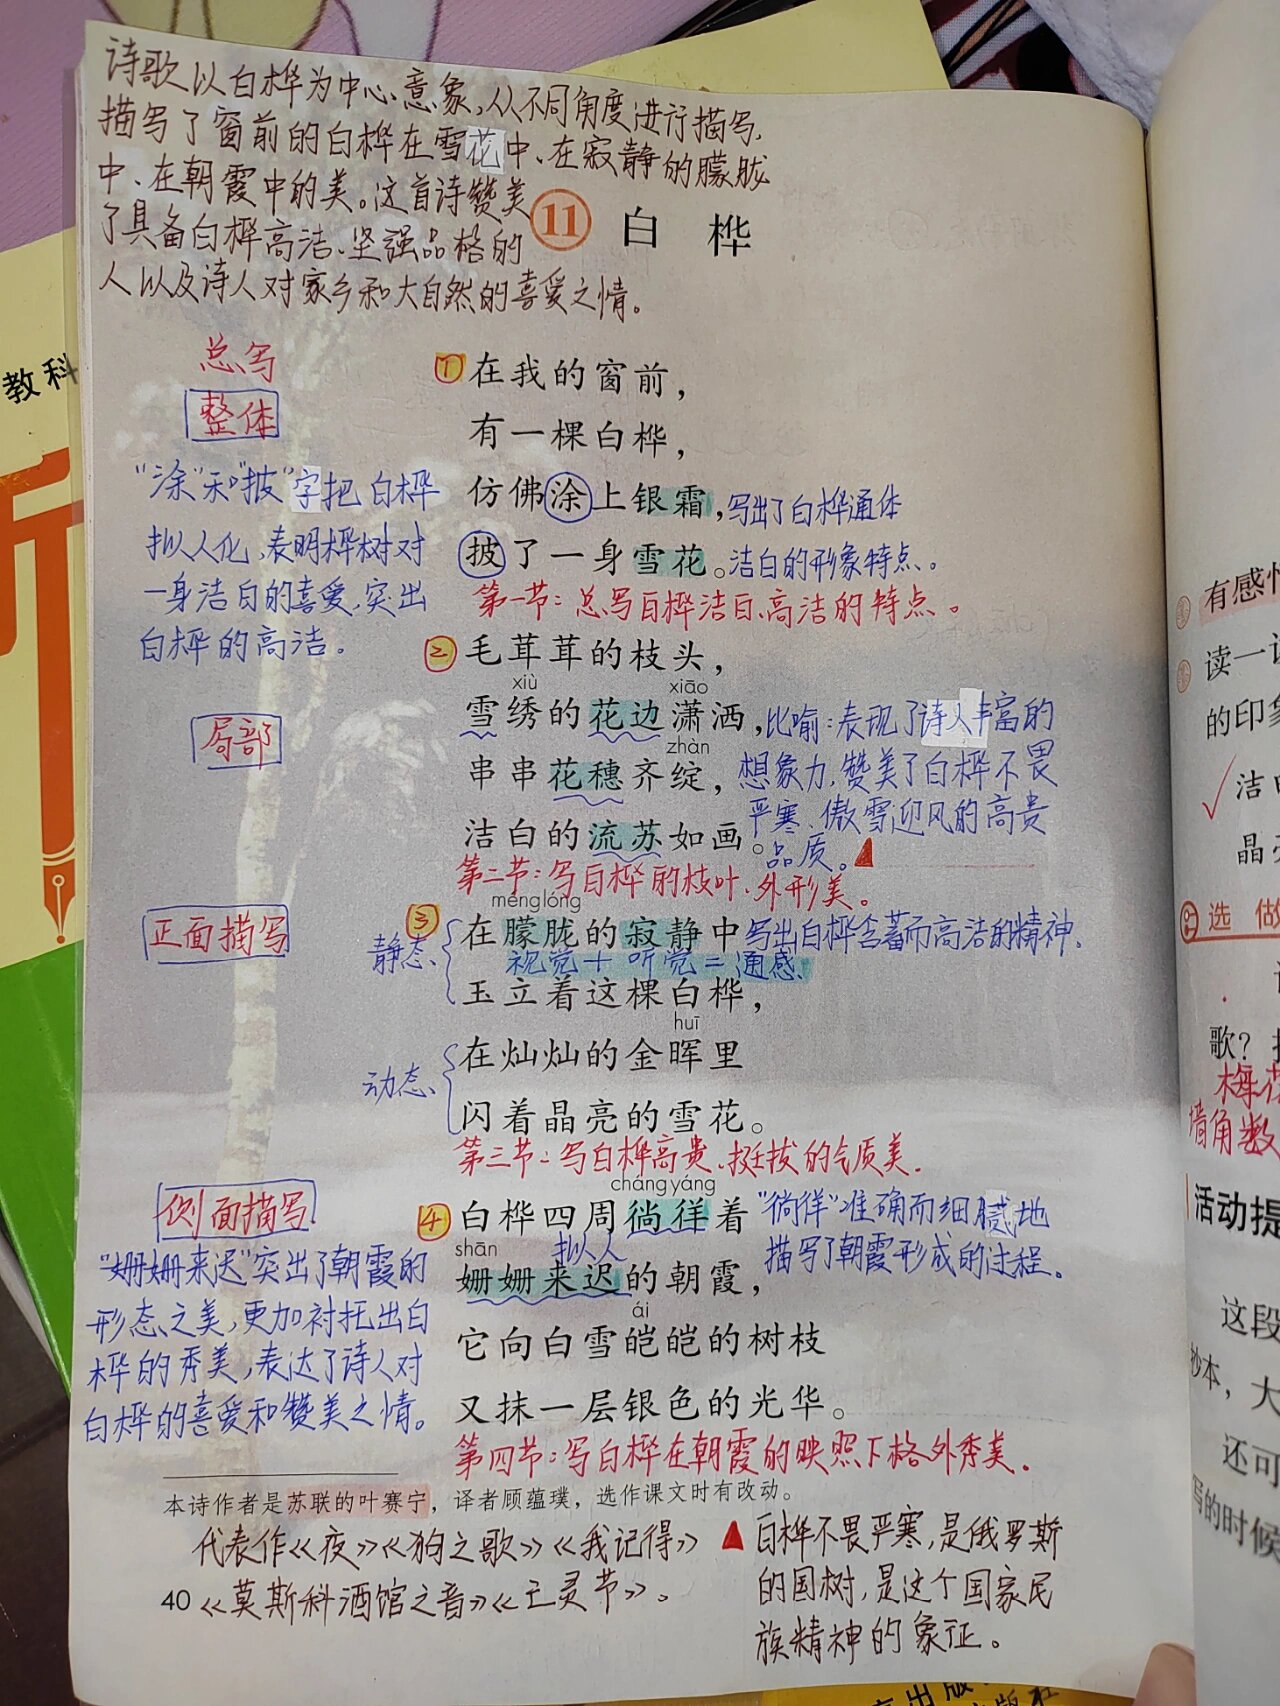 诗歌以白桦为中心意象,从不同角度进行描写,
描写了窗前的白桦在雪花中、在寂静的朦胧
中、在朝霞中的美。这首诗赞美
了具备白桦高洁、坚强品格的
人以及诗人对家乡和大自然的喜爱之情。
11 白 桦
总写
整体
① 在我的窗前，
有一棵白桦，
仿佛涂上银霜，写出了白桦通体
披了一身雪花。洁白的形象特点。
第一节：总写白桦洁白、高洁的特点。
"涂"和"披"字把白桦
拟人化,表明桦树对
一身洁白的喜爱,突出
白桦的高洁。
② 毛茸茸的枝头，
xiù xiāo
雪绣的花边潇洒，比喻：表现了诗人丰富的
zhàn
串串花穗齐绽，想象力,赞美了白桦不畏
严寒、傲雪迎风的高贵
洁白的流苏如画。品质。
第二节：写白桦的枝叶、外形美。
局部
méng lóng
③ 在朦胧的寂静中 写出白桦含蓄而高洁的精神.
静态、
视觉＋听觉＝通感.
玉立着这棵白桦，
huī
在灿灿的金晖里
动态、
闪着晶亮的雪花。
第三节：写白桦高贵、挺拔的气质美.
正面描写
侧面描写
cháng yáng
④ 白桦四周徜徉着 "徜徉"准确而细腻地
shān 拟人
姗姗来迟的朝霞，描写了朝霞形成的过程.
ái
它向白雪皑皑的树枝
又抹一层银色的光华。
第四节：写白桦在朝霞的映照下格外秀美.
"姗姗来迟"突出了朝霞的
形态之美,更加衬托出白
桦的秀美,表达了诗人对
白桦的喜爱和赞美之情。
本诗作者是苏联的叶赛宁，译者顾蕴璞，选作课文时有改动。
代表作《夜》《狗之歌》《我记得》
40 《莫斯科酒馆之音》《亡灵节》。
白桦不畏严寒,是俄罗斯
的国树,是这个国家民
族精神的象征。
教科
有感情
读一读
的印象
洁白
晶亮
选 做
歌？
梅花
墙角数
活动提
这段
抄本，大
还可
写的时候